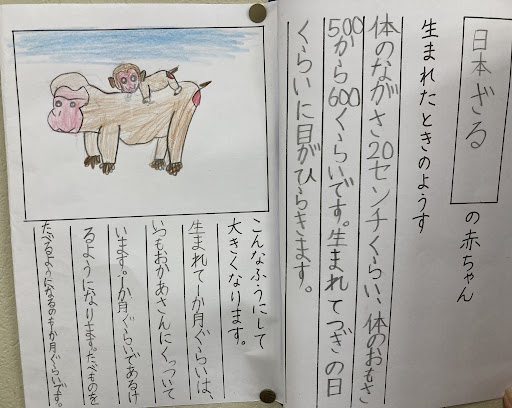 日本ざる
の赤ちゃん
生まれたときのようす
体のながさ20センチくらい、体のおもさ
500から600くらいです。生まれてつぎの日
くらいに目がひらきます。
こんなふうにして
大きくなります。
生まれて1か月ぐらいは、
いつもおかあさんにくっついて
います。1か月ぐらいであるけ
るようになります。たべものを
たべるようになるのも1か月ぐらいです。